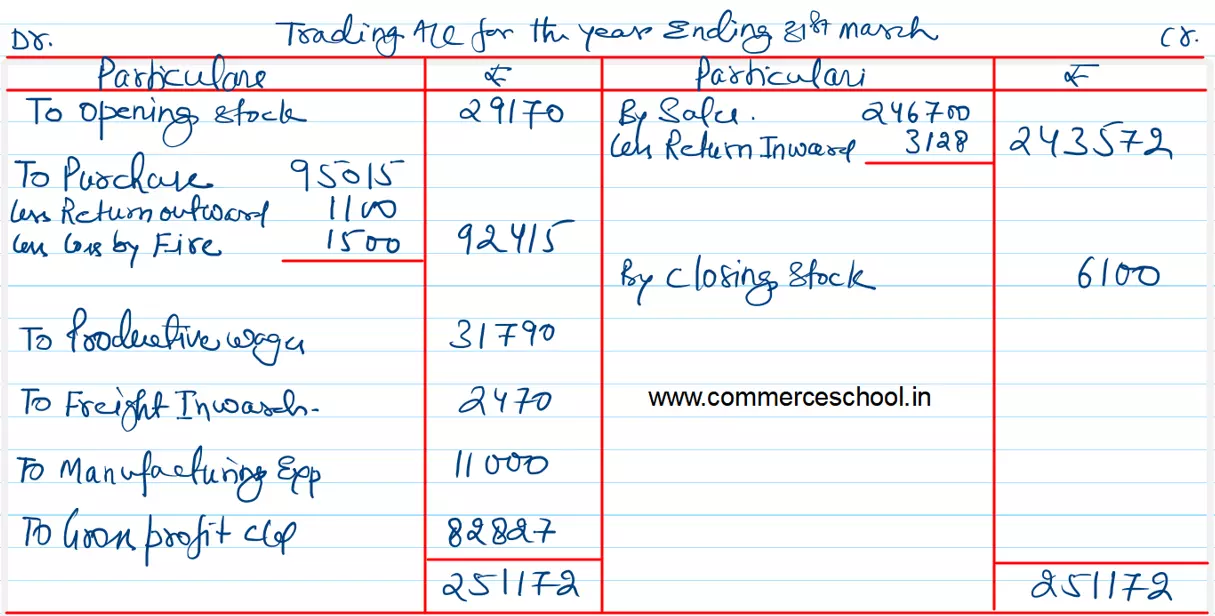 Dr. Trading A/c for the year Ending 31st march Cr.
Particulars ₹ Particulars ₹
To Opening Stock 29170 By Sales. 246700
less Return Inward 3128 243572
To Purchase 95015
less Return outward 1100
less loss by Fire 1500 92415
By Closing Stock 6100
To Productive wages 31790
To Freight Inwards- 2470
www.commerceschool.in
To Manufacturing Exp 11000
To Gross profit c/d 82827
251172 251172